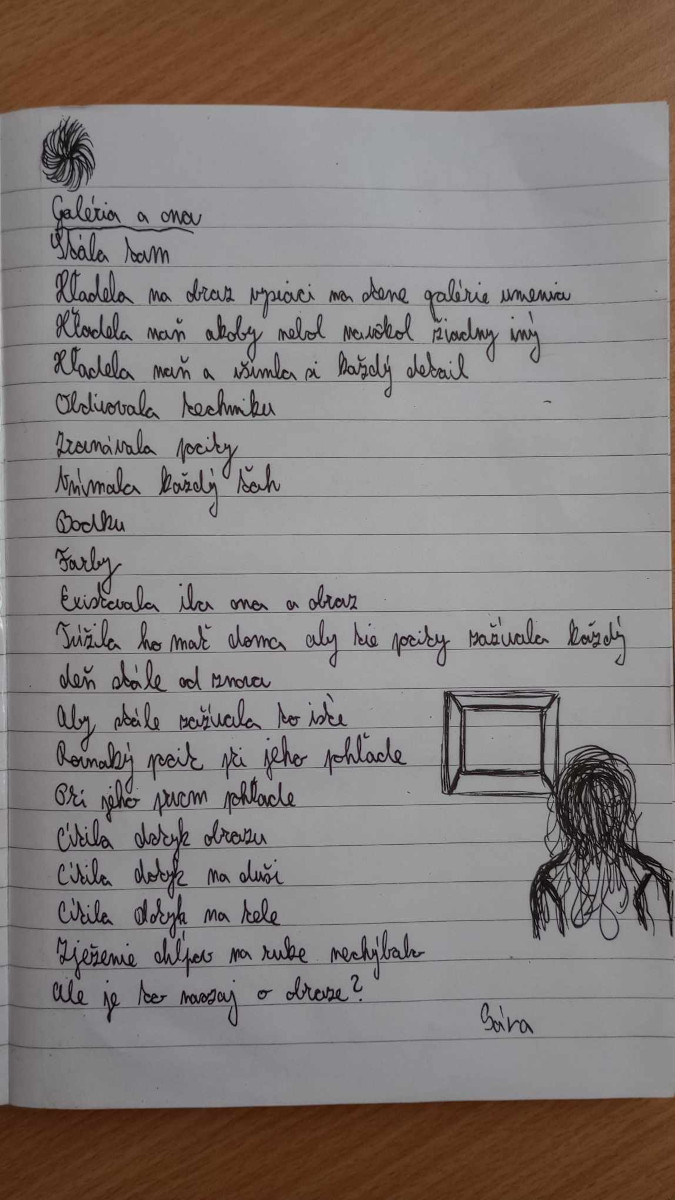 Galéria a ona
Stála tam
Hľadela na obraz vysiaci na stene galérie umenia
Hľadela naň akoby nebol navôkol žiadny iný
Hľadela naň a všimla si každý detail
Obdivovala techniku
Zrovnávala pocity
Vnímala každý ťah
Bodku
Farby
Existovala iba ona a obraz
Túžila ho mať doma aby tie pocity zažívala každý
deň stále od znova
Aby stále zažívala to isté
Rovnaký pocit pri jeho pohľade
Pri jeho prvom pohľade
Cítila dotyk obrazu
Cítila dotyk na duši
Cítila dotyk na tele
Zježenie chĺpov na ruke nechýbalo
Ale je to naozaj o obraze?
Sára